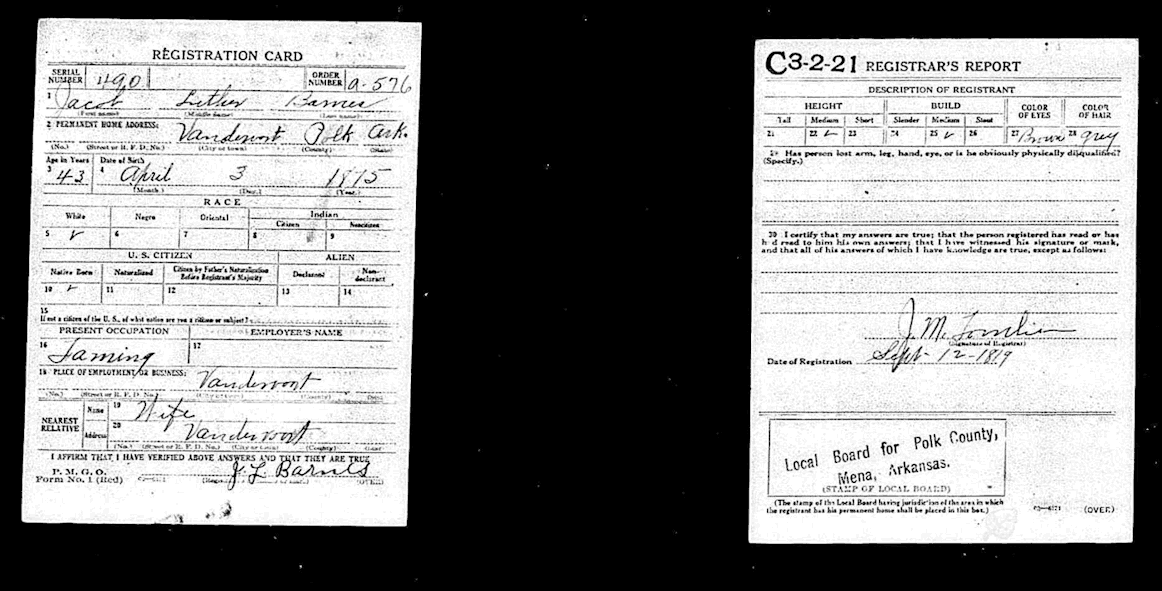 REGISTRATION CARD
SERIAL NUMBER 490 ORDER NUMBER A-576
1 Jacob Luther Barnes
(First name) (Middle name) (Last name)
2 PERMANENT HOME ADDRESS: Vandervoort Polk Ark.
(No.) (Street or R. F. D. No.) (City or town) (County) (State)
Age in Years Date of Birth
3 43 4 April 3 1875
(Month.) (Day.) (Year.)
RACE
White Negro Oriental Indian
Citizen Noncitizen
5 ✓ 6 7 8 9
U. S. CITIZEN ALIEN
Native Born Naturalized Citizen by Father's Naturalization Before Registrant's Majority Declarant Non-declarant
10 ✓ 11 12 13 14
15
If not a citizen of the U. S., of what nation are you a citizen or subject?
PRESENT OCCUPATION EMPLOYER'S NAME
16 Faming 17
18 PLACE OF EMPLOYMENT OR BUSINESS: Vandervoort
(No.) (Street or R. F. D. No.) (City or town) (County) (State)
NEAREST RELATIVE Name 19 Wife
Address 20 Vandervoort
(No.) (Street or R. F. D. No.) (City or town) (County) (State)
I AFFIRM THAT I HAVE VERIFIED ABOVE ANSWERS AND THAT THEY ARE TRUE
P. M. G. O.
Form No. 1 (Red) J. L. Barnes (OVER)
C3-2-21 REGISTRAR'S REPORT
DESCRIPTION OF REGISTRANT
HEIGHT BUILD COLOR OF EYES COLOR OF HAIR
Tall Medium Short Slender Medium Stout
21 22 ✓ 23 24 25 ✓ 26 27 Brown 28 grey
29 Has person lost arm, leg, hand, eye, or is he obviously physically disqualified?
(Specify.)
30 I certify that my answers are true; that the person registered has read or has
had read to him his own answers; that I have witnessed his signature or mark,
and that all of his answers of which I have knowledge are true, except as follows:
J. M.
(Signature of Registrar)
Date of Registration Sept- 12-1819
Local Board for Polk County,
Mena, Arkansas.
(STAMP OF LOCAL BOARD)
(The stamp of the Local Board having jurisdiction of the area in which
the registrant has his permanent home shall be placed in this box.)
(OVER)